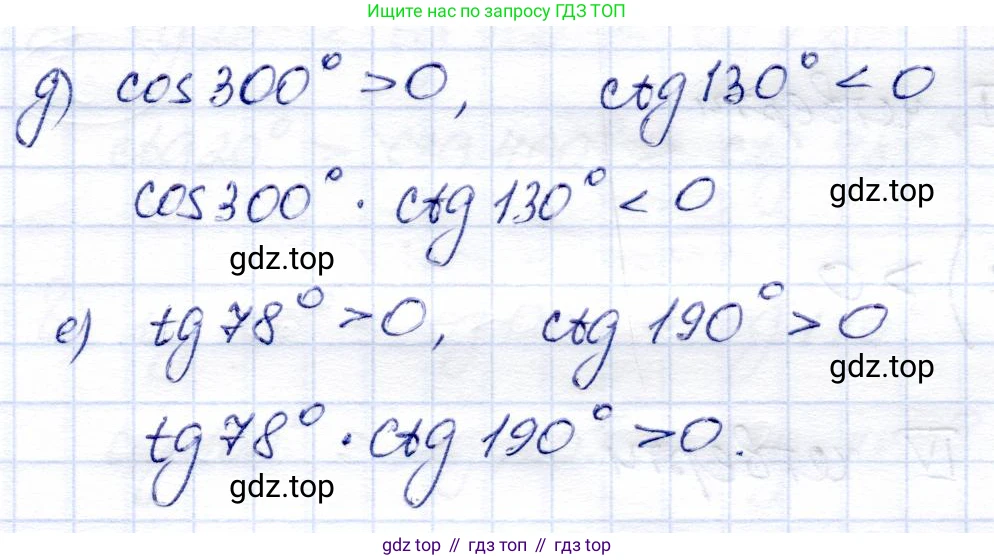 Ищите нас по запросу ГДЗ ТОП
д) cos 300° > 0, ctg 130° < 0
cos 300° · ctg 130° < 0
gdz.top
gdz.top
е) tg 78° > 0, ctg 190° > 0
gdz.top
tg 78° · ctg 190° > 0.
gdz.top
gdz.top // гдз топ // гдз топ